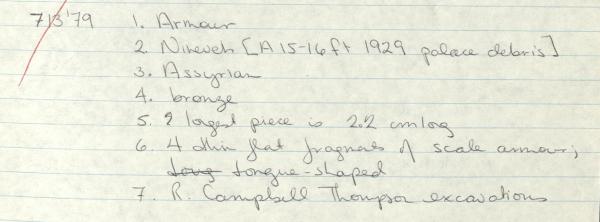 713'79 1. Armour
2. Nineveh [A 15-16 ft 1929 palace debris]
3. Assyrian
4. bronze
5. ? largest piece is 2.2 cm long
6. 4 thin flat fragments of scale armour;
tong tongue-shaped
7. R. Campbell Thompson excavations